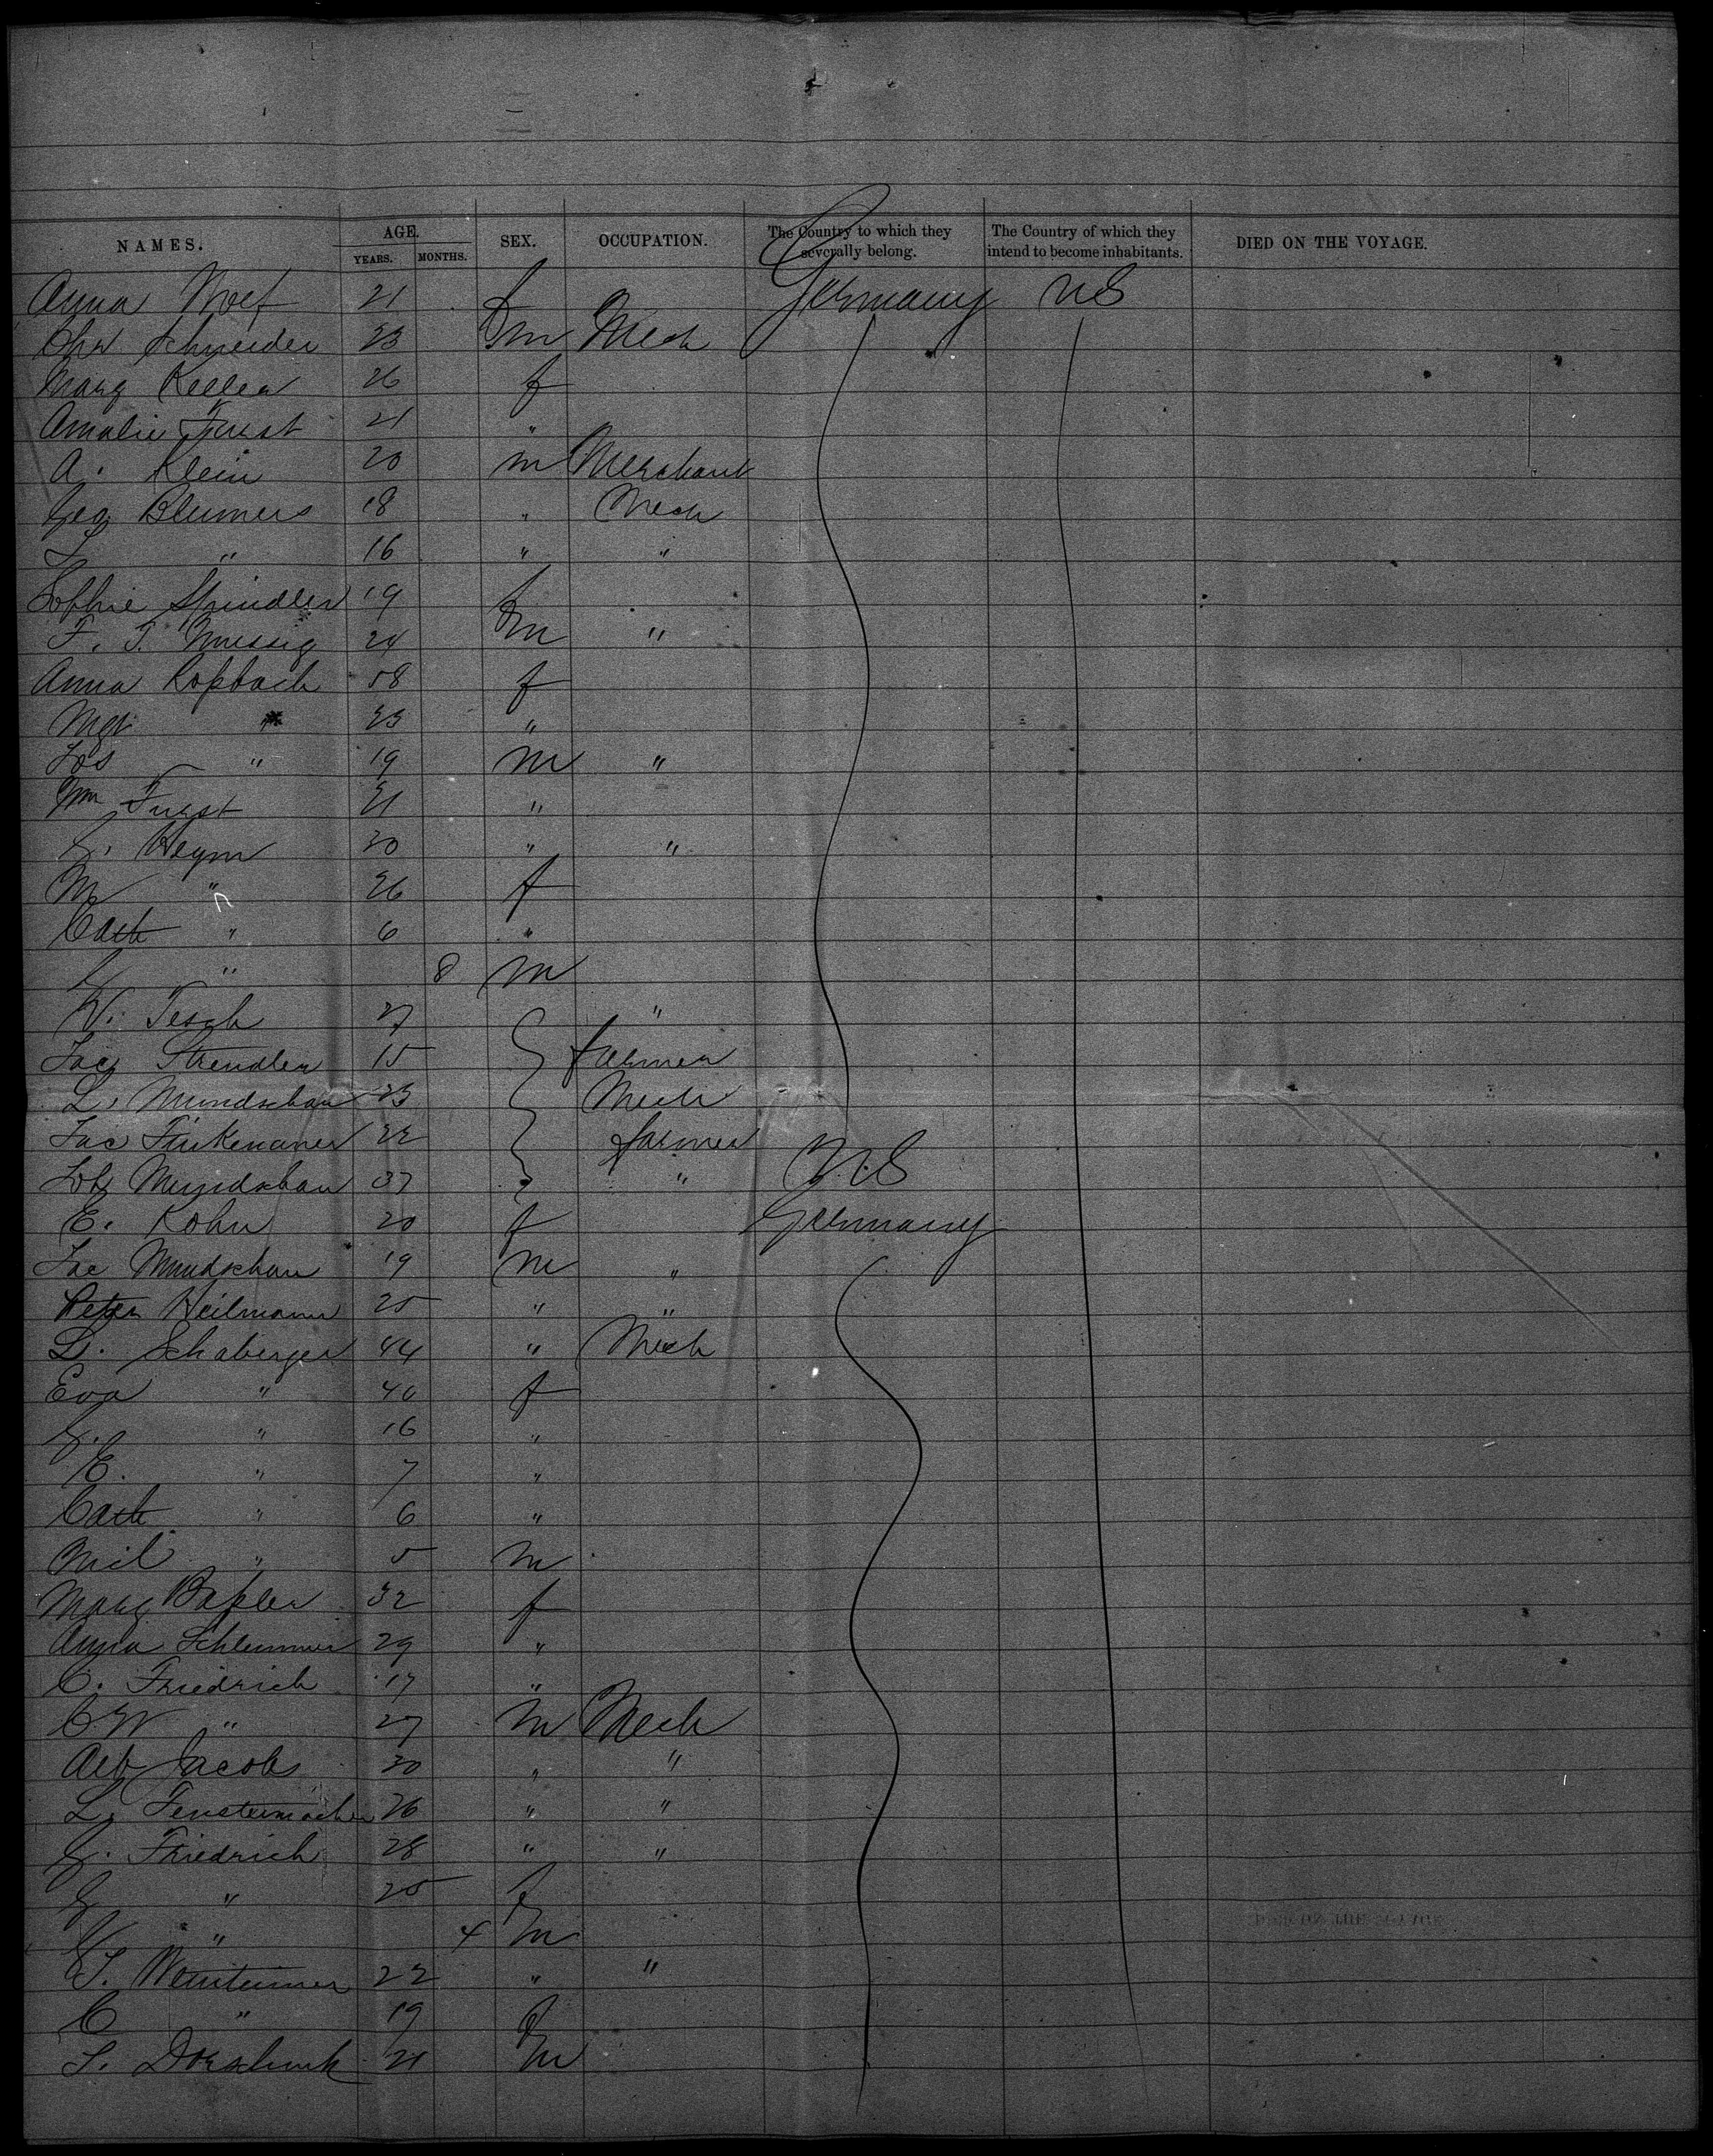 NAMES. AGE. SEX. OCCUPATION. The Country to which they severally belong. The Country of which they intend to become inhabitants. DIED ON THE VOYAGE.
YEARS. MONTHS.
Anna Wolf 21 f Germany U S
Chr Schneider 23 m Mech
Marg Keller 26 f
Amalie Furst 21 "
A. Klein 20 m Merchant
Geo Blumers 18 " Mech
L " 16 " "
Sophie Spindler 19 f
F. J. Nuessig 24 m "
Anna Roßbach 58 f
Mgt " 23 "
Jos " 19 m "
Wm Furst 21 "
G. Heym 30 " "
M " 26 f
Cath " 6 "
G " 8 m
W. Tesch 27 "
Jac Strendler 15 farmer
L. Mundschau 23 Mech
Jac Finkenauer 22 farmer
Joh Mundschau 37 " U.S
E. Kohn 20 f Germany
Jac Mundschau 19 m "
Peter Heilmann 25 " "
L. Schaberger 44 " Mech
Eva " 40 f
G. " 16 "
E. " 7 "
Cath " 6 "
Mil " 5 m
Marg Baßler 32 f
Anna Schlemmer 29 "
C. Friedrich 17 "
C W " 27 m Mech
Alb Jacobs 30 " "
L. Fenstermacher 26 " "
G. Friedrich 28 " "
G " 25 f
" 4 m
S. 22 " "
C " 19 f
S. 21 m